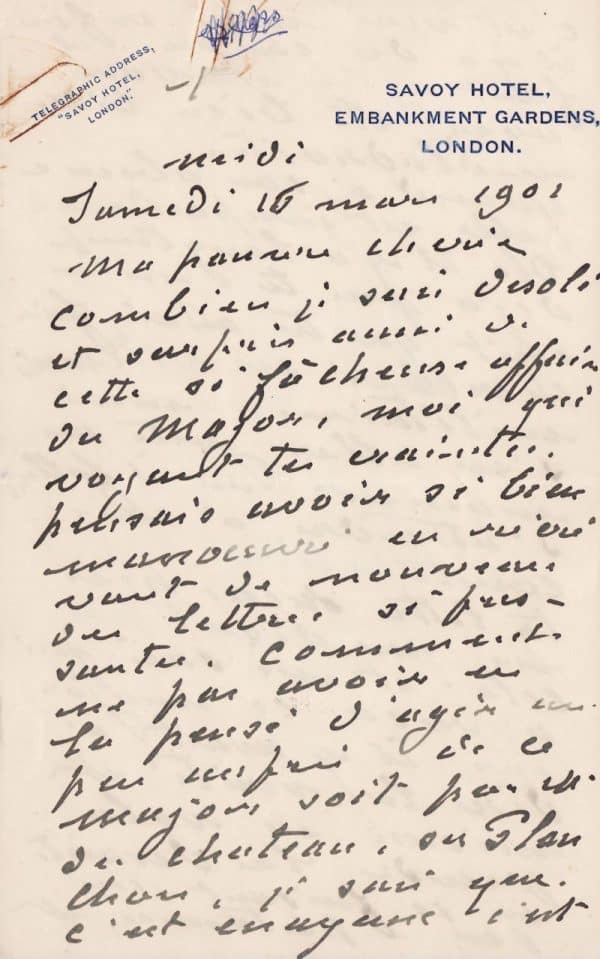 TELEGRAPHIC ADDRESS,
"SAVOY HOTEL,
LONDON."
SAVOY HOTEL,
EMBANKMENT GARDENS,
LONDON.
midi
Samedi 16 mars 1901
Ma pauvre cherie
combien je suis desolé
et surpris aussi de
cette si fâcheuse affaire
du Major, moi qui
voyant tes craintes
pensais avoir si bien
manoeuvré en
vant de nouveau
des lettres si pres-
santes. Comment
ne pas avoir eu
la pensé d'agir un
peu auprès de ce
major soit par
du chateau, ou Plan
chon, je sais que
c'est c'est